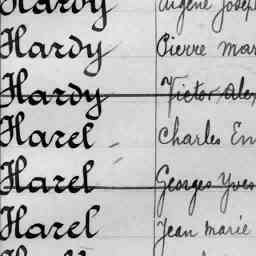 Hardy Eugène Josep
Hardy Pierre Mar
Hardy Victor Alex
Harel Charles Em
Harel Georges Yves
Harel Jean Marie